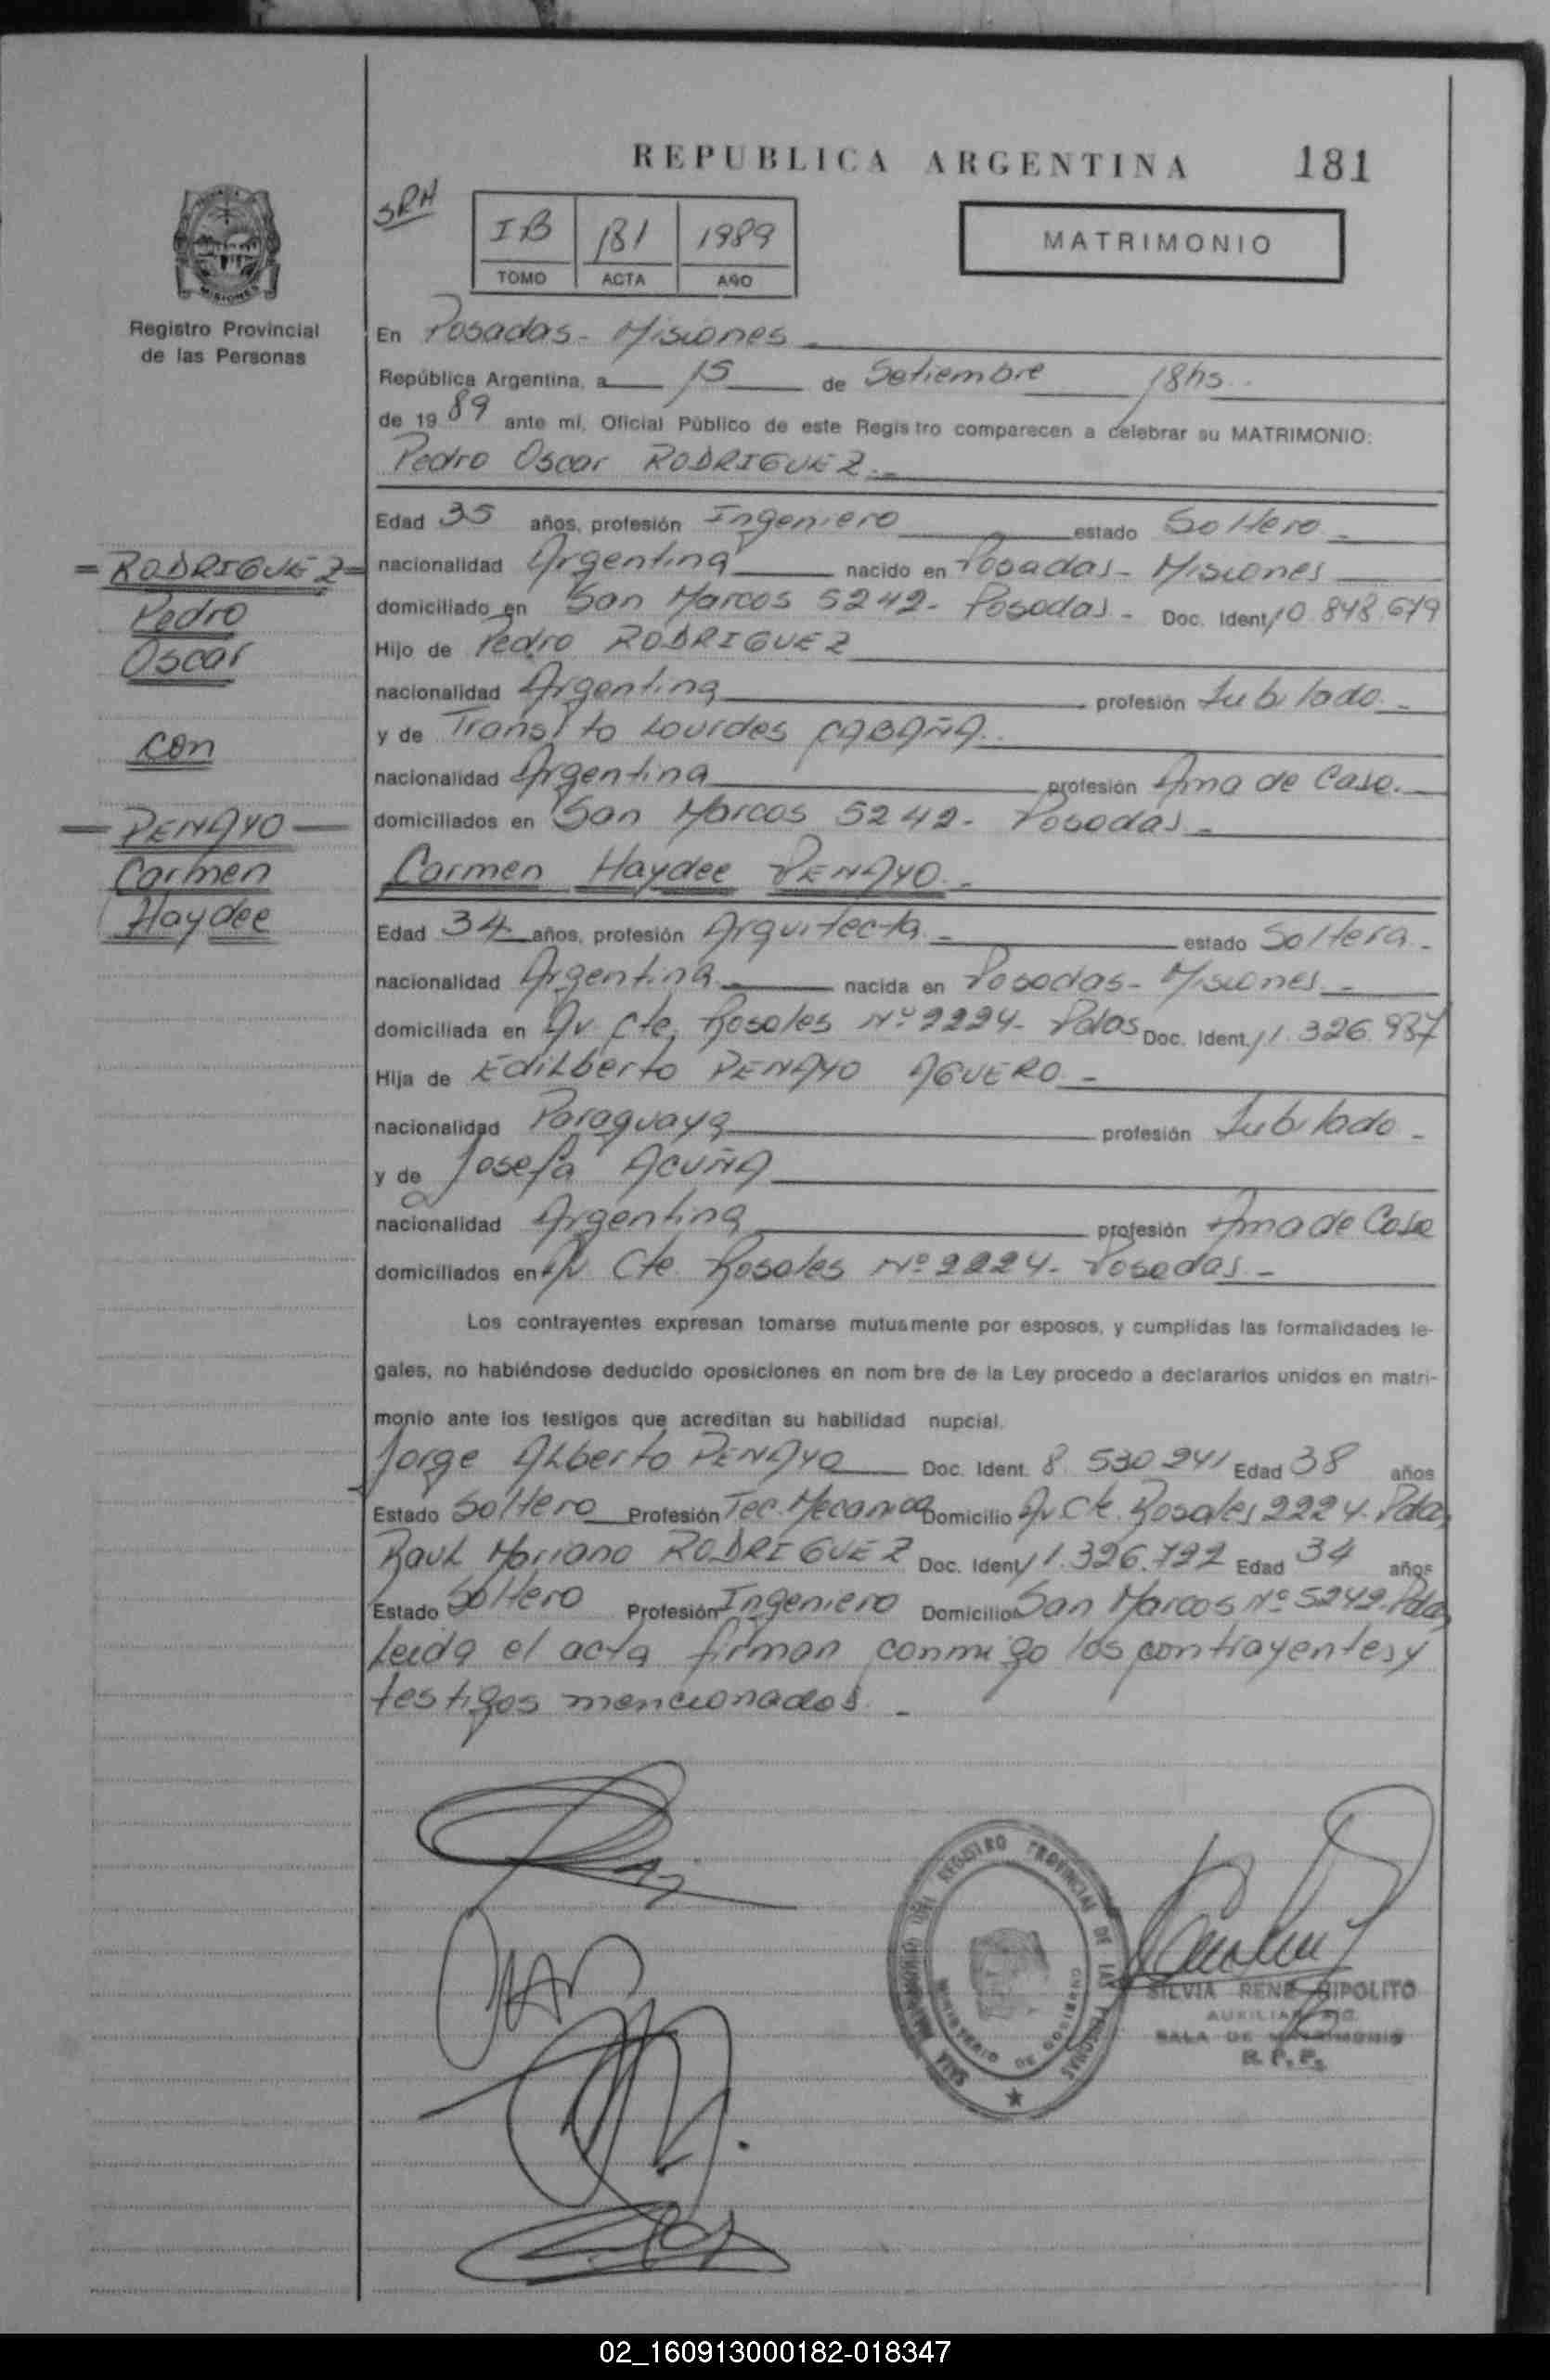 REPUBLICA ARGENTINA 181
SRH
IB 181 1989
TOMO ACTA AÑO
MATRIMONIO
MISIONES
Registro Provincial
de las Personas
En Posadas - Misiones
República Argentina, a 15 de Setiembre 18hs.
de 1989 ante mí, Oficial Público de este Registro comparecen a celebrar su MATRIMONIO:
Pedro Oscar RODRIGUEZ.-
Edad 35 años, profesión Ingeniero estado Soltero -
nacionalidad Argentina nacido en Posadas - Misiones
domiciliado en San Marcos 5242 - Posadas - Doc. Ident. 10.848.679
Hijo de Pedro RODRIGUEZ
nacionalidad Argentina profesión Jubilado.-
y de Transito Lourdes CABAÑA.
nacionalidad Argentina profesión Ama de Casa.
domiciliados en San Marcos 5242 - Posadas -
= RODRIGUEZ =
Pedro
Oscar
con
— PENAYO —
Carmen
Haydee
Carmen Haydee PENAYO.-
Edad 34 años, profesión Arquitecta.- estado Soltera.-
nacionalidad Argentina.- nacida en Posadas - Misiones.-
domiciliada en Av. Cte. Rosales Nº 2224 - Pdas Doc. Ident. 11.326.937
Hija de Edilberto PENAYO AGUERO.-
nacionalidad Paraguaya profesión Jubilado -
y de Josefa ACUÑA
nacionalidad Argentina profesión Ama de Casa
domiciliados en Av. Cte. Rosales Nº 2224 - Posadas.-
Los contrayentes expresan tomarse mutuamente por esposos, y cumplidas las formalidades le-
gales, no habiéndose deducido oposiciones en nom bre de la Ley procedo a declararlos unidos en matri-
monio ante los testigos que acreditan su habilidad nupcial.
Jorge Alberto PENAYO Doc. Ident. 8.530.241 Edad 38 años
Estado Soltero Profesión Tec. Mecanico Domicilio Av. Cte. Rosales 2224. Pdas
Raul Mariano RODRIGUEZ Doc. Ident. 11.326.722 Edad 34 años
Estado Soltero Profesión Ingeniero Domicilio San Marcos Nº 5242. Pdas
Leida el acta firman conmigo los contrayentes y
testigos mencionados.-
REGISTRO PROVINCIAL DE LAS PERSONAS
MINISTERIO DE GOBIERNO
SILVIA RENE HIPOLITO
SALA DE MATRIMONIO
R. P. P.
02_160913000182-018347